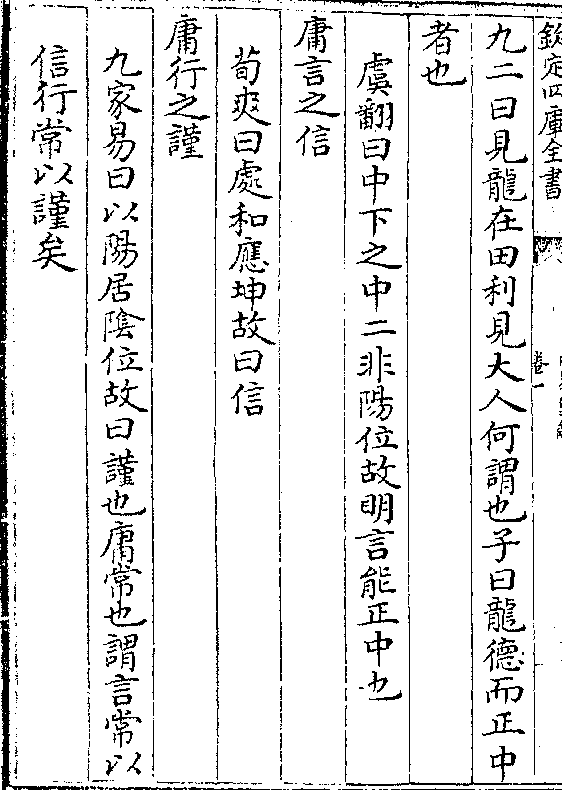 欽定四庫全書
卷一
九二曰見龍在田利見大人何謂也子曰龍德而正中
者也
虞翻曰中下之中二非陽位故明言能正中也
庸言之信
荀爽曰處和應坤故曰信
庸行之謹
九家易曰以陽居陰位故曰謹也庸常也謂言常以
信行常以謹矣